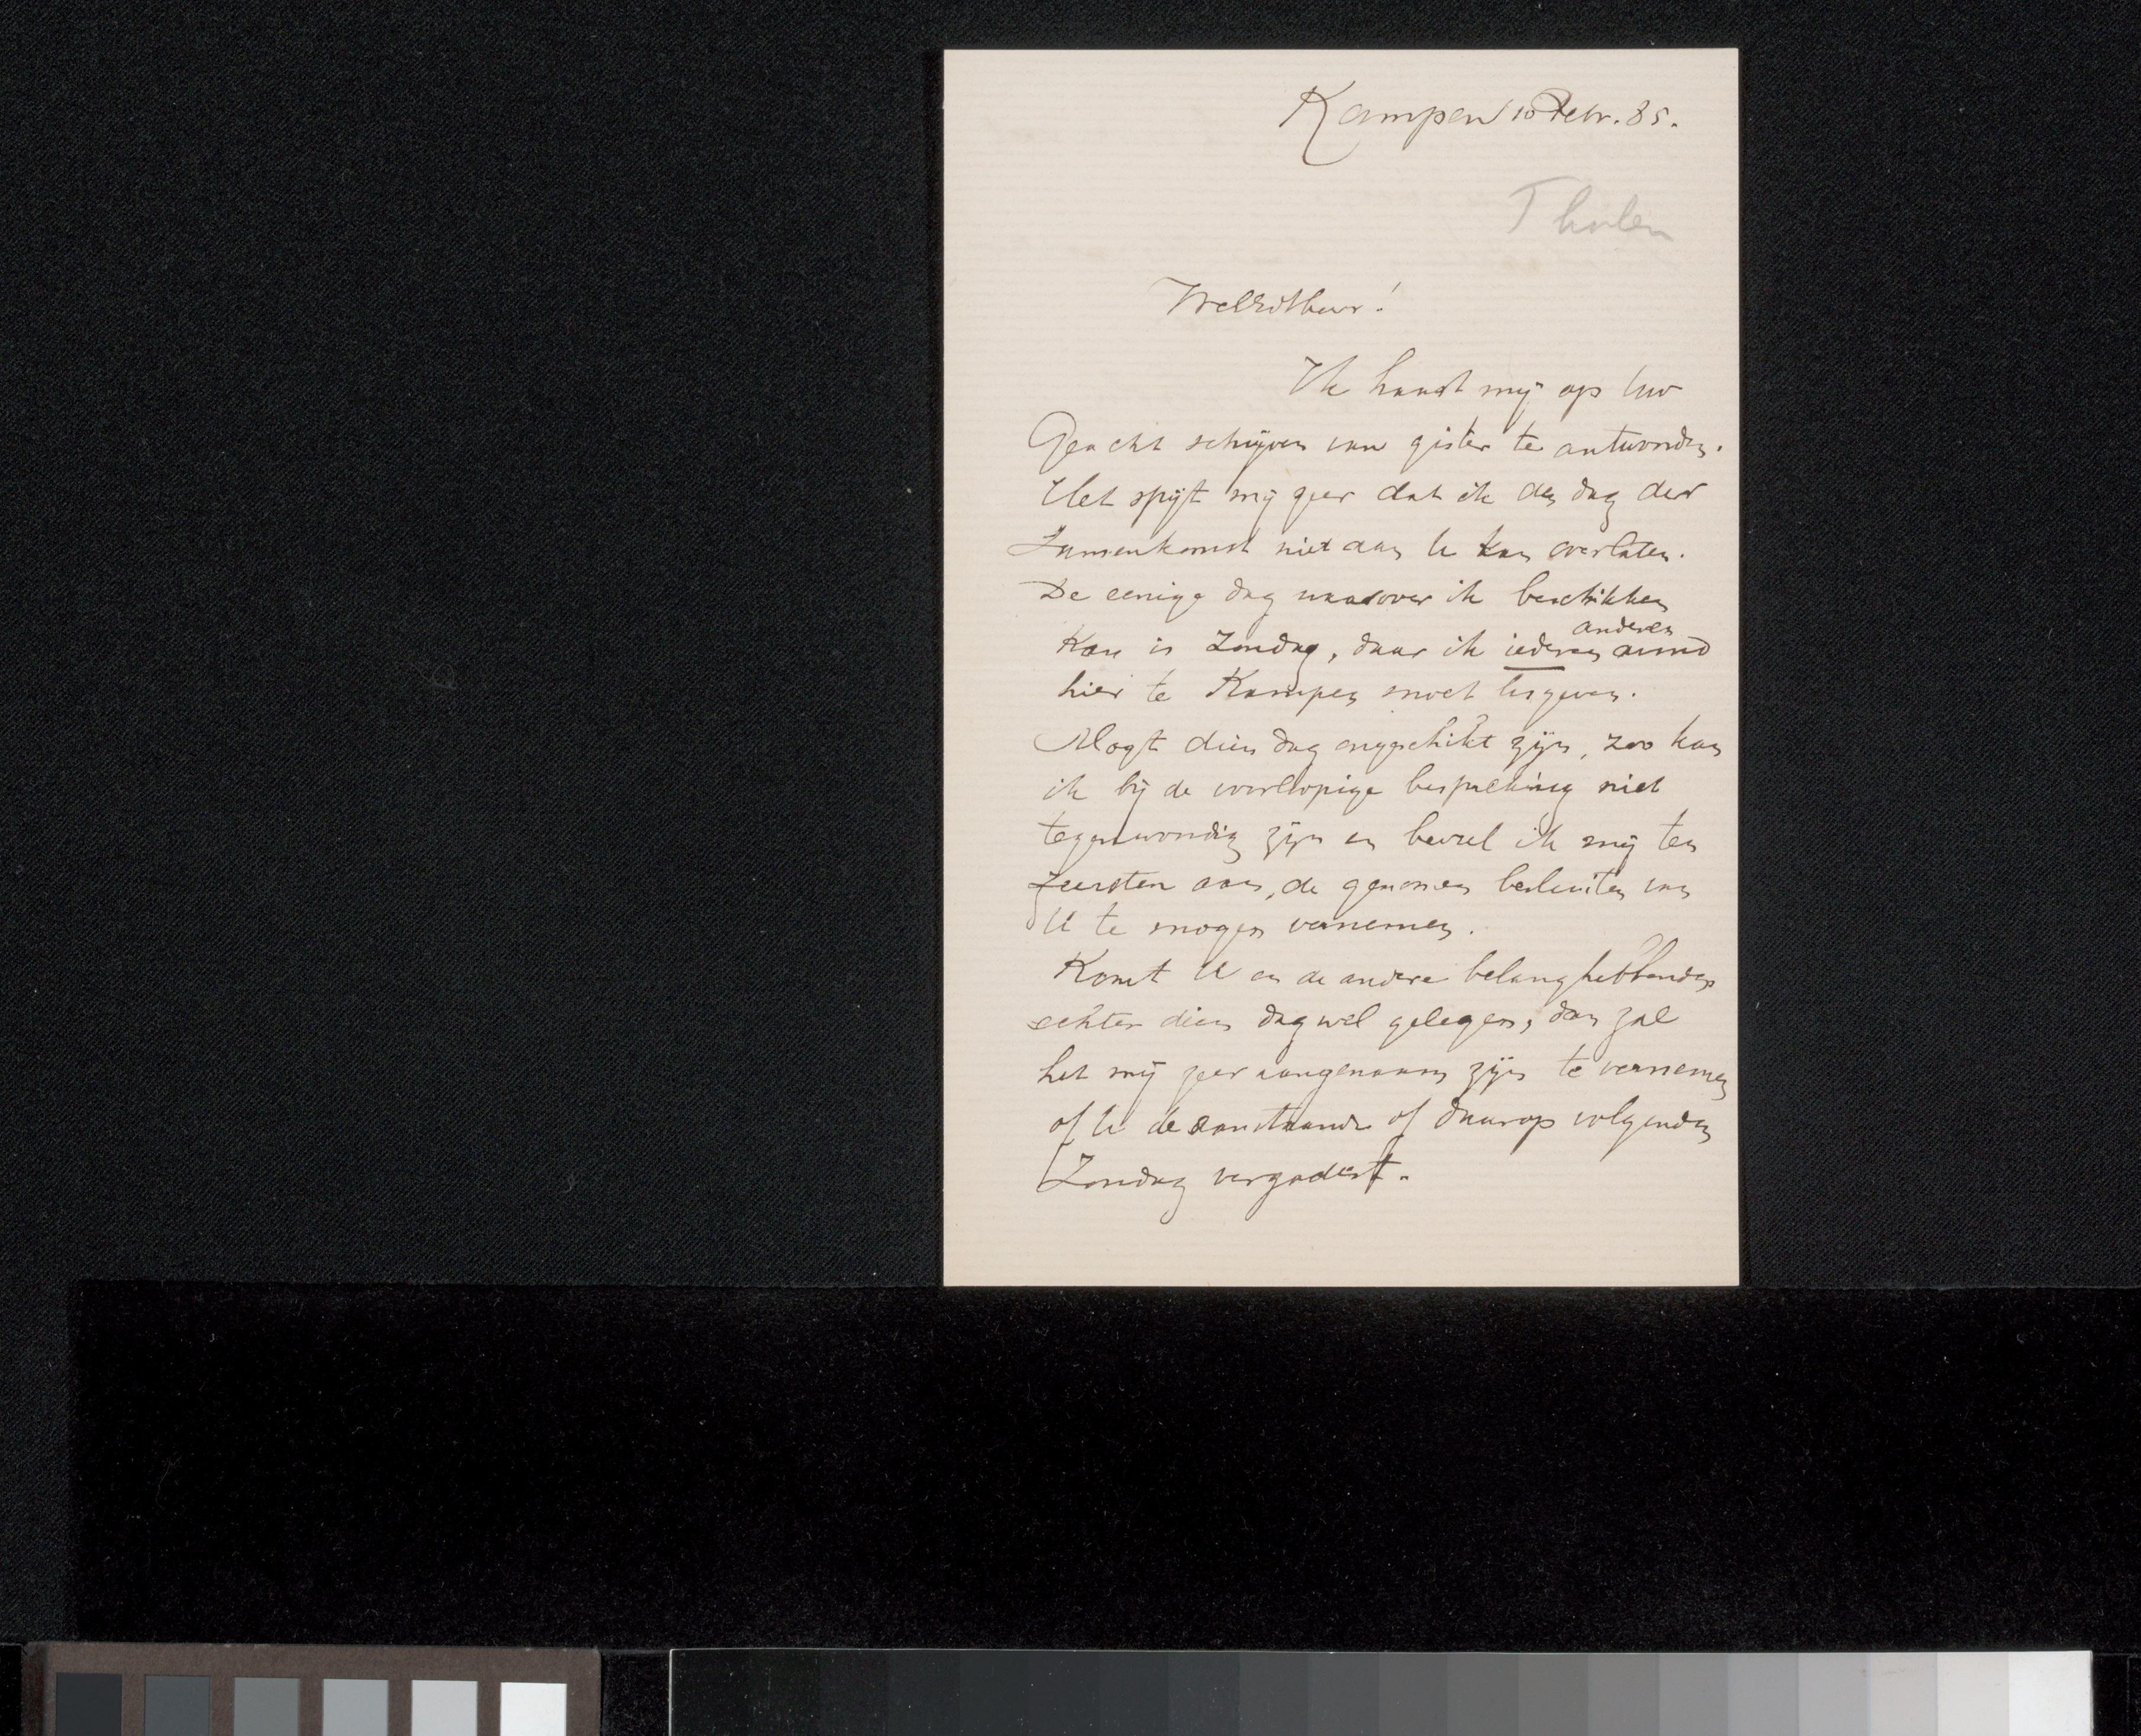 Kampen 10 Febr. 85.
Tholen
WelEdHeer!
Ik haast mij op Uw
Geacht schrijven van gister te antwoorden.
Het spijt mij zeer dat ik den dag der
Zamenkomst niet aan U kan overlaten.
De eenige dag waarover ik beschikken
anderen
kan is Zondag, daar ik iederen avond
hier te Kampen moet lesgeven.
Mogt dien dag ongeschikt zijn, zoo kan
ik bij de voorlopige bespreking niet
tegenwoordig zijn en beveel ik mij ten
zeersten aan, de genomen besluiten van
U te mogen vernemen.
Komt U en de andere belanghebbenden
echter dien dag wel gelegen, dan zal
het mij zeer aangenaam zijn te vernemen
of U de aanstaande of daarop volgenden
Zondag vergadert.